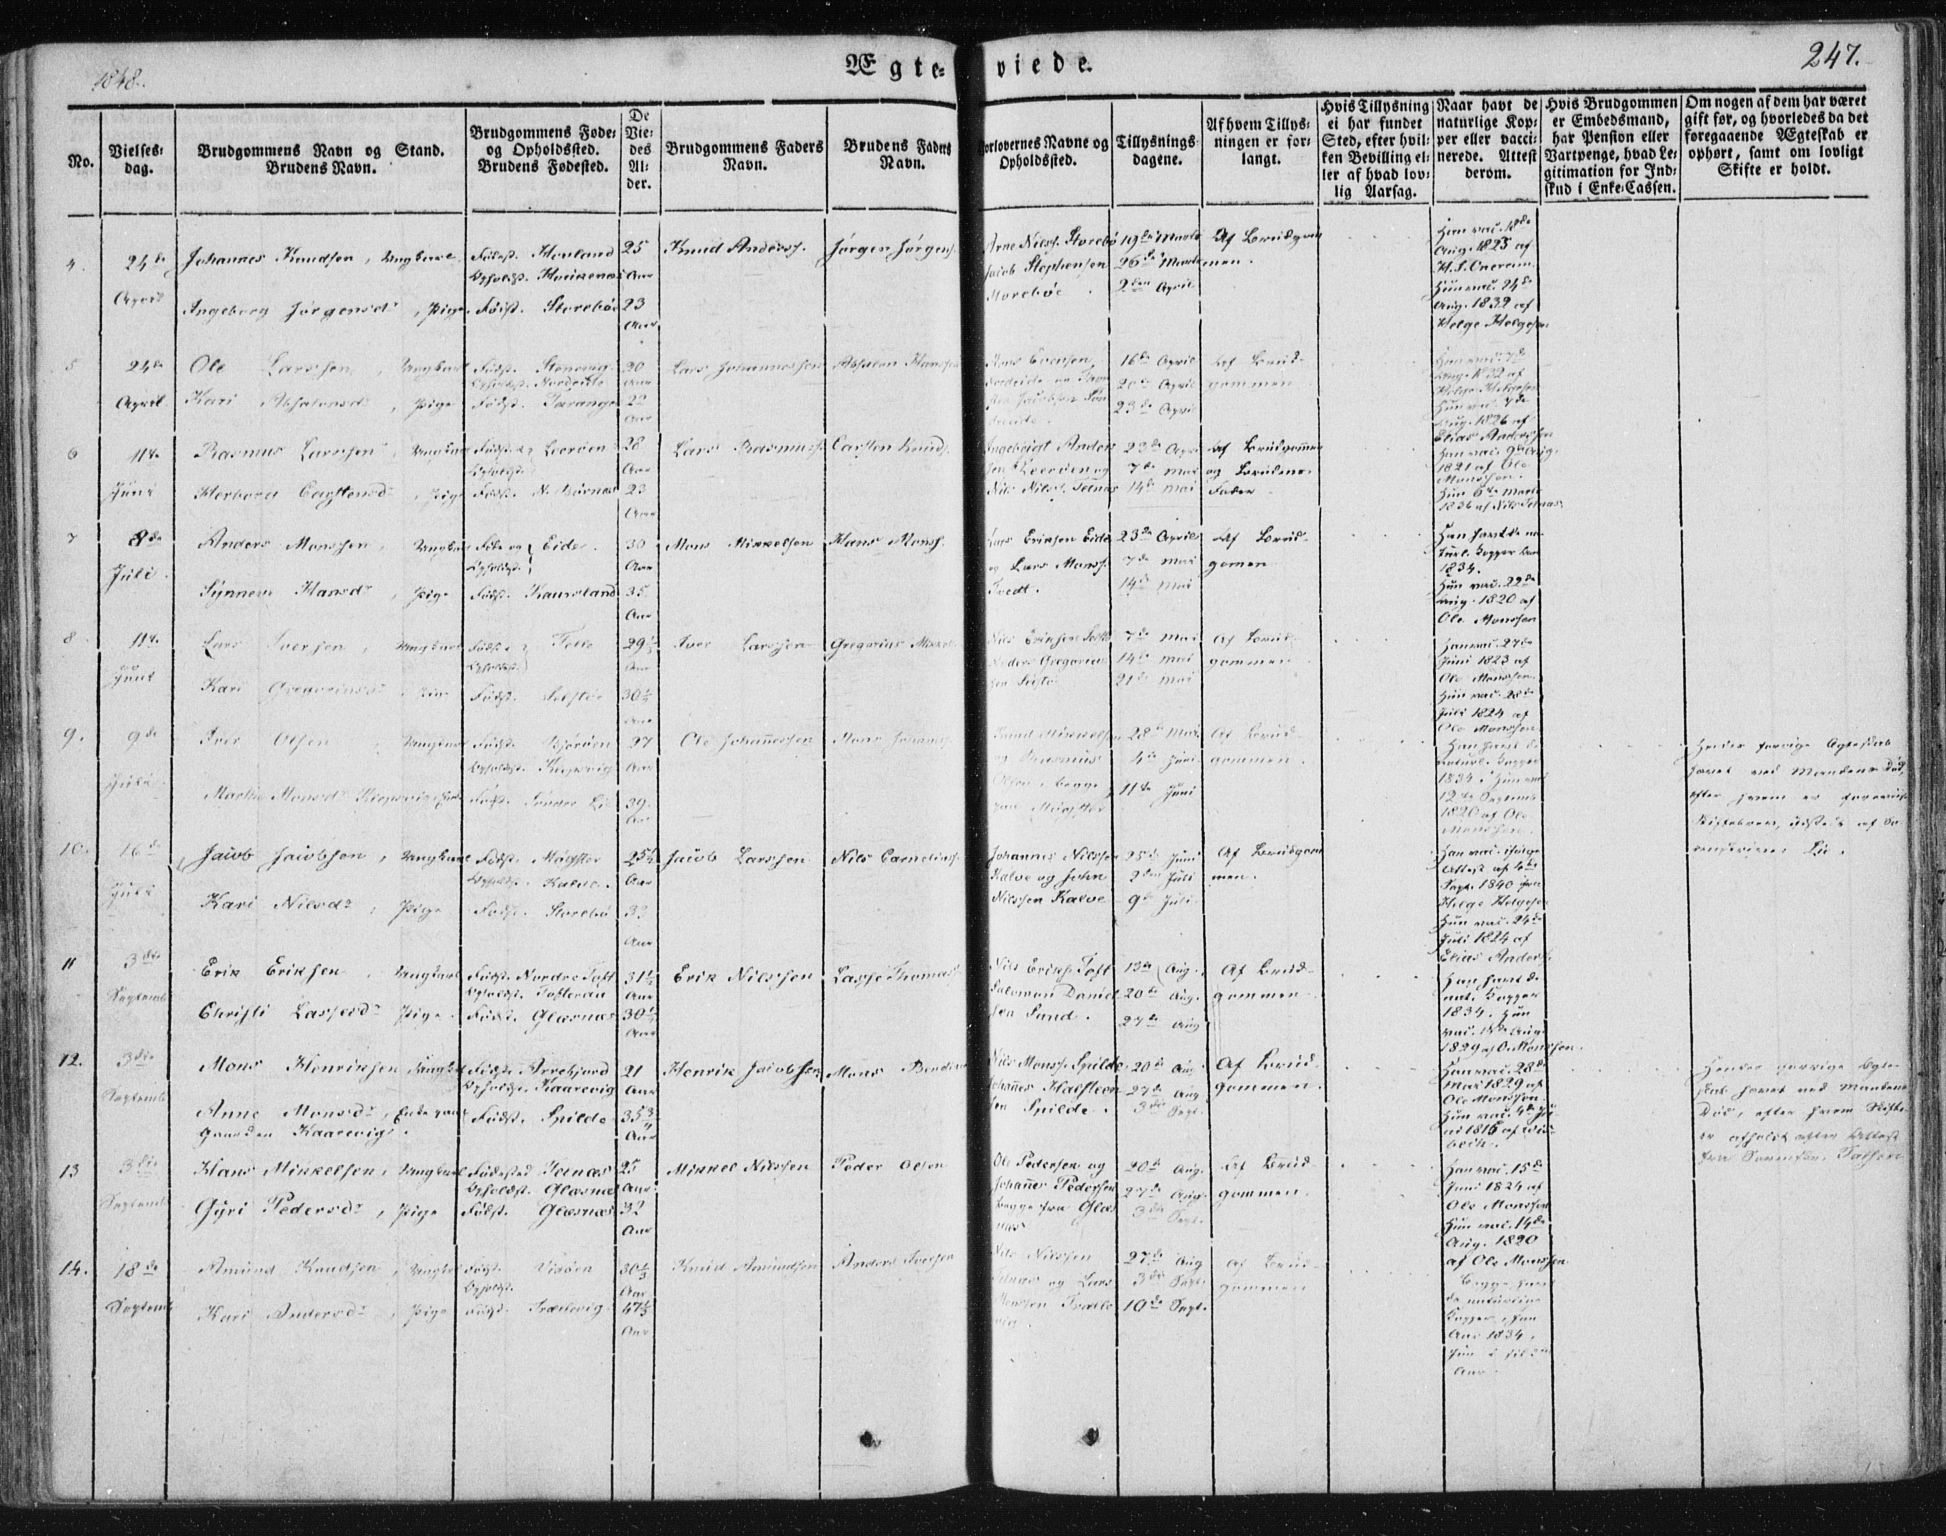 1848.
Ægteviede.
247.
No.
Vielsesdag.
Brudgommens Navn og Stand.
Brudens Navn.
Brudgommens Føde-
og Opholdssted.
Brudens Fødested.
De
Vie-
des
Al-
der.
Brudgommens Faders
Navn.
Brudens Faders
Navn.
Forlovernes Navne og
Opholdssted.
Tillysnings-
dagene.
Af hvem Tillys-
ningen er for-
langt.
Hvis Tillysning
ei har fundet
Sted, efter hvil-
ken Bevilling el-
ler af hvad lov-
lig Aarsag.
Naar havt de
naturlige Kop-
per eller vacci-
nerede. Attest
derom.
Hvis Brudgommen
er Embedsmand,
har Pension eller
Vartpenge, hvad Le-
gitimation for Ind-
skud i Enke-Cassen.
Om nogen af dem har været
gift før, og hvorledes da det
foregaaende Ægteskab er
ophørt, samt om lovligt
Skifte er holdt.
4
24de
April
Johannes Knudsen, Ungkarl
Ingeborg Jørgensdr, Pige
Fødest. Houland
Opholdst.
Fødst. Storebøe
25
Aar
23
Aar
Knud Anderss.
Jørgen Jørgens.
Arne Nilss. Storebø
Jacob Stephensen
Storebøe
19de Marts
26de Marts
2den April
Af Brudgom
men.
Han vac. 18de
Aug. 1825 af
Hun vac. 24de
Aug. 1832 af
Helge Helgesen
5
24de
April
Ole Larssen, Ungkarl
Kari Absalonsdr, Pige
Fødst. Stenevig
Opholdst. Nordeide
Fødst.
30
Aar
22
Aar
Lars Johannessen
Absalon Hanssen
16de April
20de April
23de April
Af Brud-
gommen
Han vac. 7de
Aug. 1832 af
Helge Helgesen
Hun vac. 7de
Aug. 1826 af
Elias Anderssen
6
11te
Juni
Rasmus Larssen, Ungkarl
Herborg Carstensdr, Pige
Fødst. og Leerøen
Opholdst.
Fødst. N. Bjørnæs
28
Aar
23
Aar
Lars Rasmuss.
Carsten Knuds.
Ingebrigt Anders
sen Leerøen og
Nils Nilss. Telnæs
23de April
7de Mai
14de Mai
Af Brudgommen
og Brudens
Fader
Han vac. 9de Aug.
1821 af Ole
Monssen.
Hun 6te Marts
1836 af Nils Telnæs
7
8de
Juli
Anders Monssen, Ungkarl
Synneva Hansdr, Pige
Føde og Eide.
Opholdst.
Fødst. Kausland
30
Aar
35
Aar
Mons Mikkelsen
Hans Monss.
Lars Eriksen Eide
og Lars Monss.
Tvedt.
23de April
7de Mai
14de Mai
Af Brud-
gommen
Han havt de na-
turl. Kopper Aar
1834.
Hun vac. 22de
Aug. 1820 af
Ole Monssen
8
11te
Juni
Lars Iversen, Ungkarl
Kari Gregoriusdr, Pige
Fødst. og
Opholdst.
Fødst.
29½
Aar
30½
Aar
Iver Larssen
Gregorius Mikkels.
Nils Eriksen
Anders Gregorius
sen
7de Mai
14de Mai
21de Mai
Af Brud-
gommen
Han vac. 27de
Juni 1823 af
Ole Monssen.
Hun vac. 28de
Juli 1824 af
Ole Monssen
9.
9de
Juli
Iver Olsen, Ungkarl
Martha Monsdr
Fødst. Bjørøen
Opholdst.
Fødst.
27
Aar
39
Aar
Ole Johannessen
Mons Johanss.
Knud Mikkelsen
og Rasmus
Olsen, begge
fra Møgster
28de Mai
4de Juni
11te Juni
Af Brud-
gommen.
Han havt de
naturl. Kopper
1834. Hun vac.
12te Septemb
1820 af Ole
Monssen.
Hendes forrige Ægteskab
hævet ved Mandens Død,
efter hvem er foreviist
Skiftebrev, udstedt af So
renskriver
10.
16de
Juli
Jacob Jacobsen, Ungkarl
Kari Nilsdr, Pige
Fødst. Møgster
Opholdst. Kalve.
Fødst. Storebø
25½
Aar
32
Aar
Jacob Larssen
Nils Corneliuss.
Johannes Nilssen
Kalve og John
Nilssen Kalve
25de Juni
2den Juli
9de Juli
Af Brudgom
men.
Han vac. ifølge
Attest af 4de
Sept. 1840 fra
Helge Helgesen
Hun vac. 24de
Juli 1824 af
Elias Anders.
11
3die
Septemb
Erik Eriksen, Ungkarl
Christi Lassesdr, Pige
Fødst. Nordre Toft
Opholdst. Tofterøe
Fødst. Glæsnæs
31½
Aar
30½
Aar
Erik Nilssen
Lasse Thomas.
Nils Erikss. Toft
Salomon Daniel
sen Sand.
13de Aug.
20de Aug.
27de Aug
Af Brud-
gommen
Han havt de
nat. Kopper
1834. Hun
vac. 14de Aug.
1829 af O. Monssen.
12.
3die
Septemb
Mons Henriksen, Ungkarl
Anne Monsdr, Enke paa
Gaarden Kaarevig.
Fødst.
Opholdst. Kaarevig
Fødst. Spilde
21
Aar
35¾
Aar
Henrik Jacobsen
Mons
Nils Monss. Spilde
Johannes Halsteen
sen Spilde.
20de Aug.
27de Aug
3die Sept.
Af Brud-
gommen.
Han vac. 28de
Mai 1829 af
Ole Monssen
Hun vac. 4de Ju-
ni 1816 af
Hendes forrige Ægte-
skab hævet ved Mandens
Død, efter hvem Skifte
er afholdt efter Attest
fra
13
3die
Septemb
Hans Mikkelsen, Ungkarl
Gyri Pedersdr, Pige
Fødested Telnæs
Opholdst. Glæsnæs
Fødst. Glæsnæs
25
Aar
32
Aar
Mikkel Nilssen
Peder Olsen
Ole Pedersen og
Johannes Pedersen
begge fra Glæs
næs
20de Aug.
27de Aug.
3die Sept.
Af Brud-
gommen.
Han vac. 15de
Juni 1824 af
Ole Monssen
Hun vac. 14de
Aug. 1820
af Ole Monssen
14.
18de
Septemb
Amund Knudsen, Ungkarl
Kari Andersdr, Pige
Fødst. Vinøen
Opholdst.
Fødst. Trælevig
30⅓
Aar
47½
Aar
Knud Amundsen
Anders Iversen
Nils Nilssen
Telnæs og Lars
Monssen Trælevig
27de Aug
3die Sept.
10de Sept.
Af Brud-
gommen
Begge havt
de naturlige
Kopper, han
Aar 1834,
hun i sit
Aar.